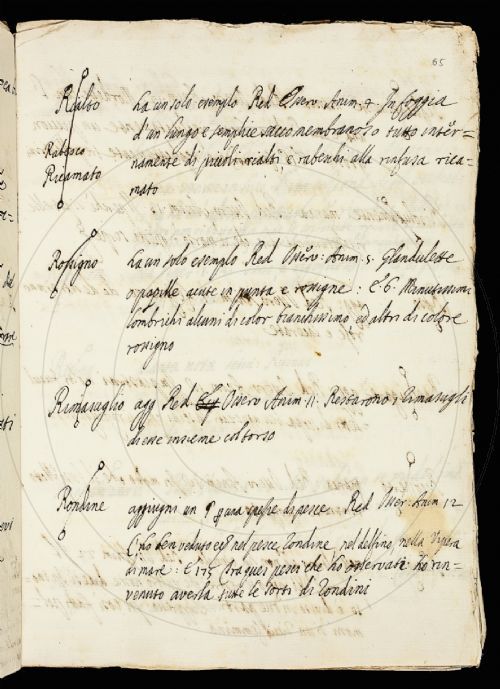 65
Rialto ha un solo esemplo Red Osserv. Anim. 4. In foggia
d'un lungo e semplice sacco membranoso tutto inter=
Rabesco
namente di piccoli rialti, e rabeschi alla rinfusa rica=
Ricamato
mato
Rossigno ha un solo esemplo Red Osserv: Anim. 5. Glandulette
o papille acute in punta e rossigne: E 6. Minutissimi
lombrichi alcuni di color bianchissimo, ed altri di colore
rossigno
Rimasuglio agg Red Osserv Anim 11. Restarono i rimasugli
di esse insieme col torso
Rondine aggiugni un § una spezie di pesce. Red Osser: Anim 12
ho ben veduto nel pesce rondine, nel delfino, nella Vipera
di mare: E 175 tra quei pesci che ho osservati ho rin=
venuto averla tutte le sorti di rondini